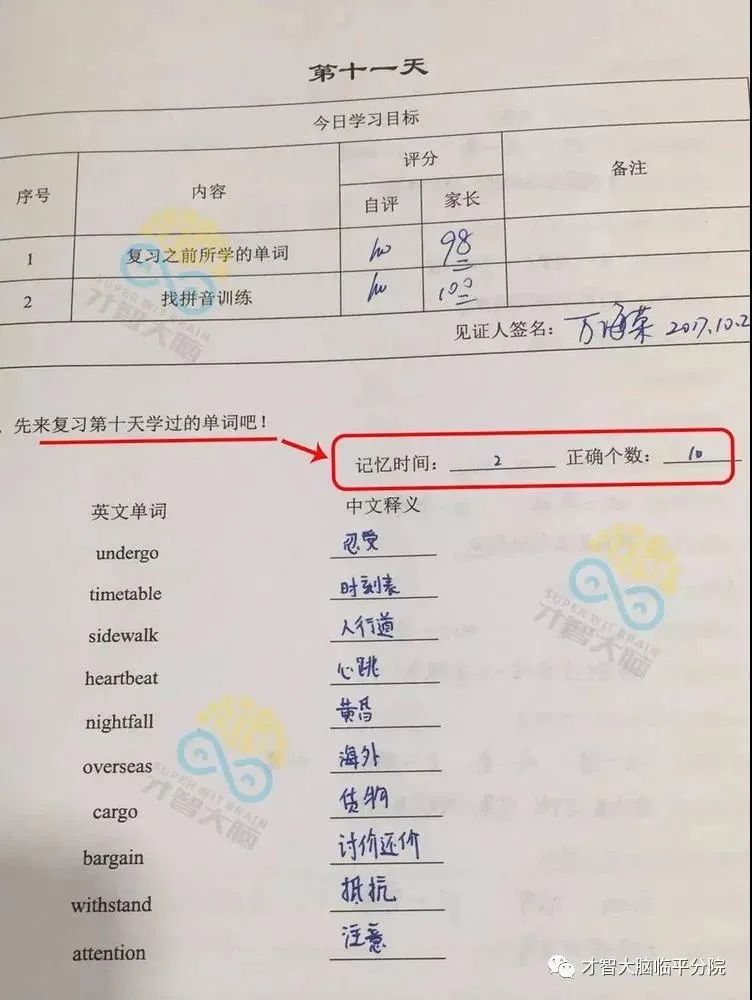 第十一天
今日学习目标
序号 内容 评分 备注
自评 家长
1 复习之前所学的单词 100 98
2 找拼音训练 100 100
见证人签名: 万海荣 2017.10.2
先来复习第十天学过的单词吧!
记忆时间: 2 正确个数: 10
英文单词 中文释义
undergo 忍受
timetable 时刻表
sidewalk 人行道
heartbeat 心跳
nightfall 黄昏
overseas 海外
cargo 货物
bargain 讨价还价
withstand 抵抗
attention 注意
SUPER WIT BRAIN
才智大脑
SUPER WIT BRAIN
才智大脑
SUPER WIT BRAIN
才智大脑
才智大脑临平分院